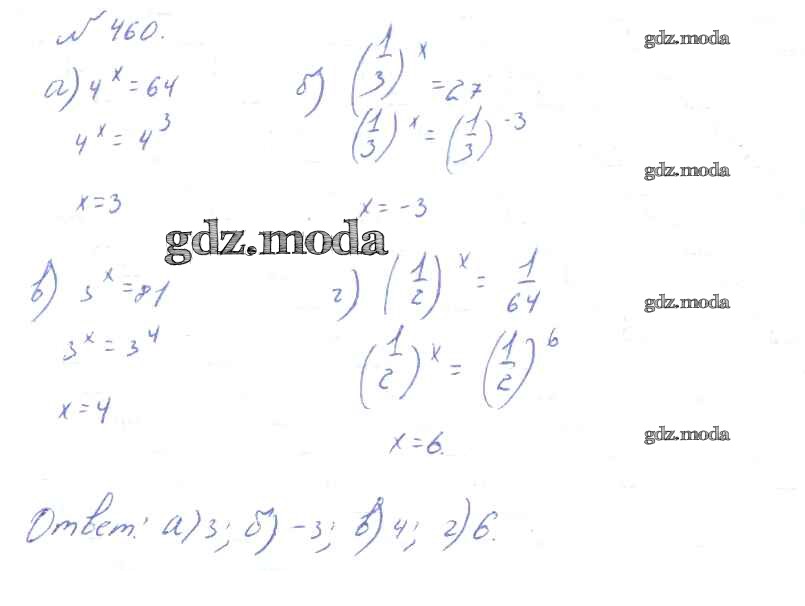 № 460.
gdz.moda
а) 4^x = 64
4^x = 4^3
x = 3
б) (1/3)^x = 27
(1/3)^x = (1/3)^-3
x = -3
gdz.moda
gdz.moda
в) 3^x = 81
3^x = 3^4
x = 4
г) (1/2)^x = 1/64
(1/2)^x = (1/2)^6
x = 6.
gdz.moda
gdz.moda
Ответ: а) 3; б) -3; в) 4; г) 6.